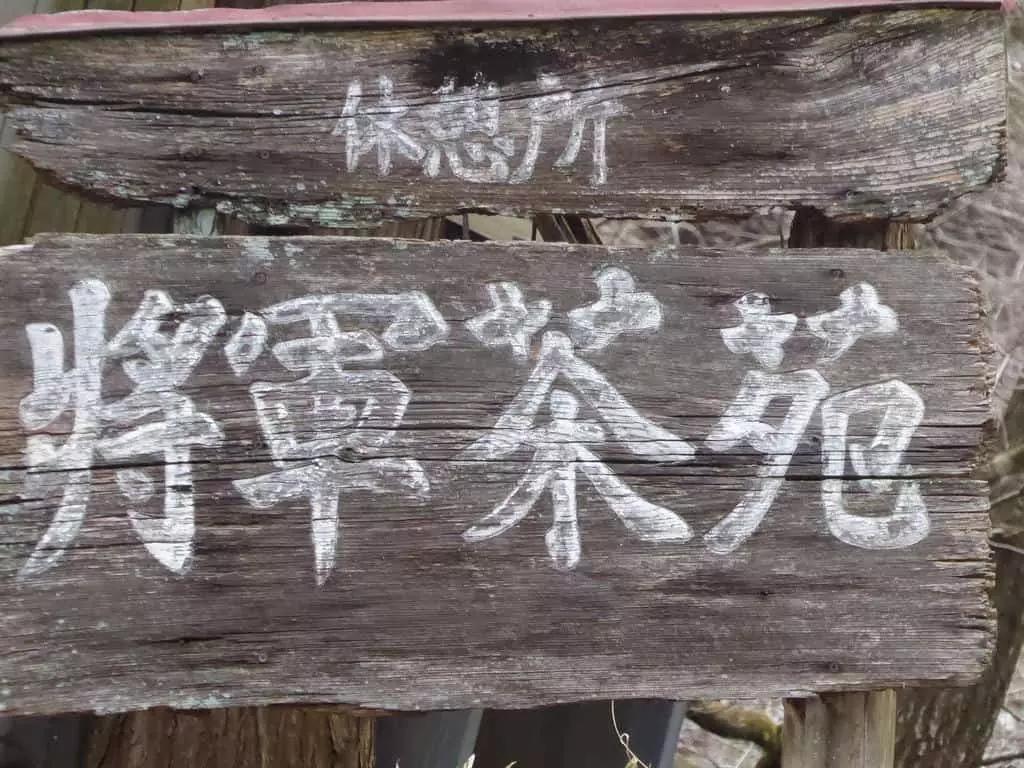 休憩所
將軍茶苑